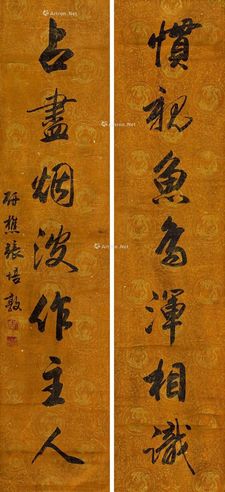 慣親魚鳥渾相識
占盡烟波作主人
研樵張培敦